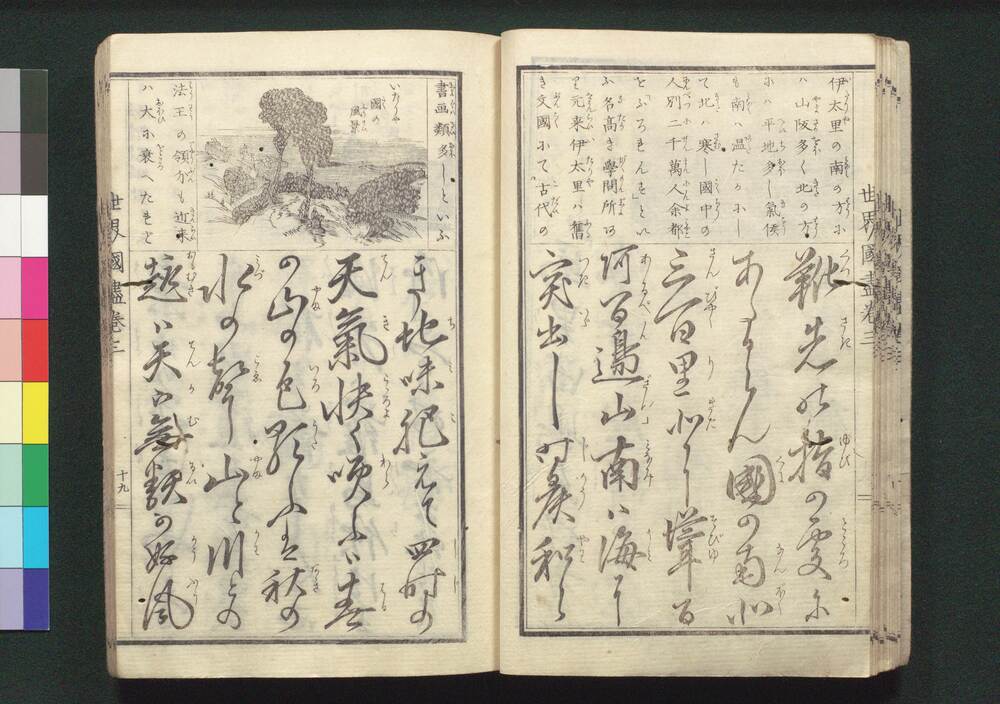 伊太里の南の方ホ
ハ山阪多く北の方
ホハ平地多し氣候
も南ハ温たかホし
て北ハ寒し國中の
人別二千萬人余都
を「ふろれんす」とい
ふ名高き學問所あ
り元来伊太里ハ舊
き文國ホて古代の
靴先の指の処に
あたらん國の南北
三百里北に聳ゆる
阿留邊山南は海に
突出し時候和ら
世界國盡巻三
書画類多しといふ
いたりや
國の
風景
法王の領分も近来
ハ大ホ衰へたれど
ぎ地味肥えて四時の
天氣快く咲ふハ春
の山の色歌ふは秋の
水の聲山と川との
趣は天か無類の好風
世界國盡巻三
十九